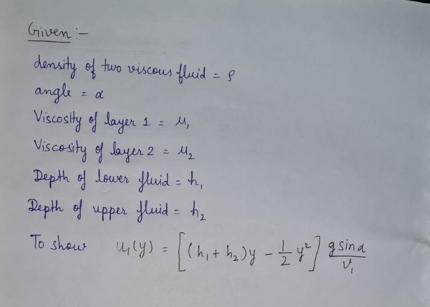 Given:-
density of two viscous fluid = ρ
angle = α
Viscosity of layer 1 = μ₁
Viscosity of layer 2 = μ₂
Depth of lower fluid = h₁
Depth of upper fluid = h₂
To show u₁(y) = [(h₁ + h₂)y - 1/2 y²] g sinα / ν₁